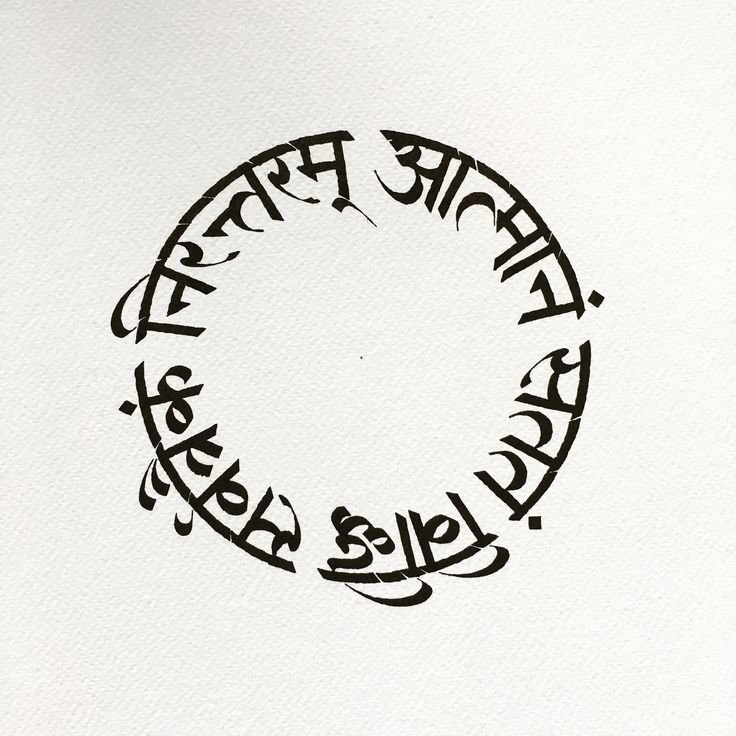 आत्मानं सततं विद्धि सर्वत्रैकं निरन्तरम्